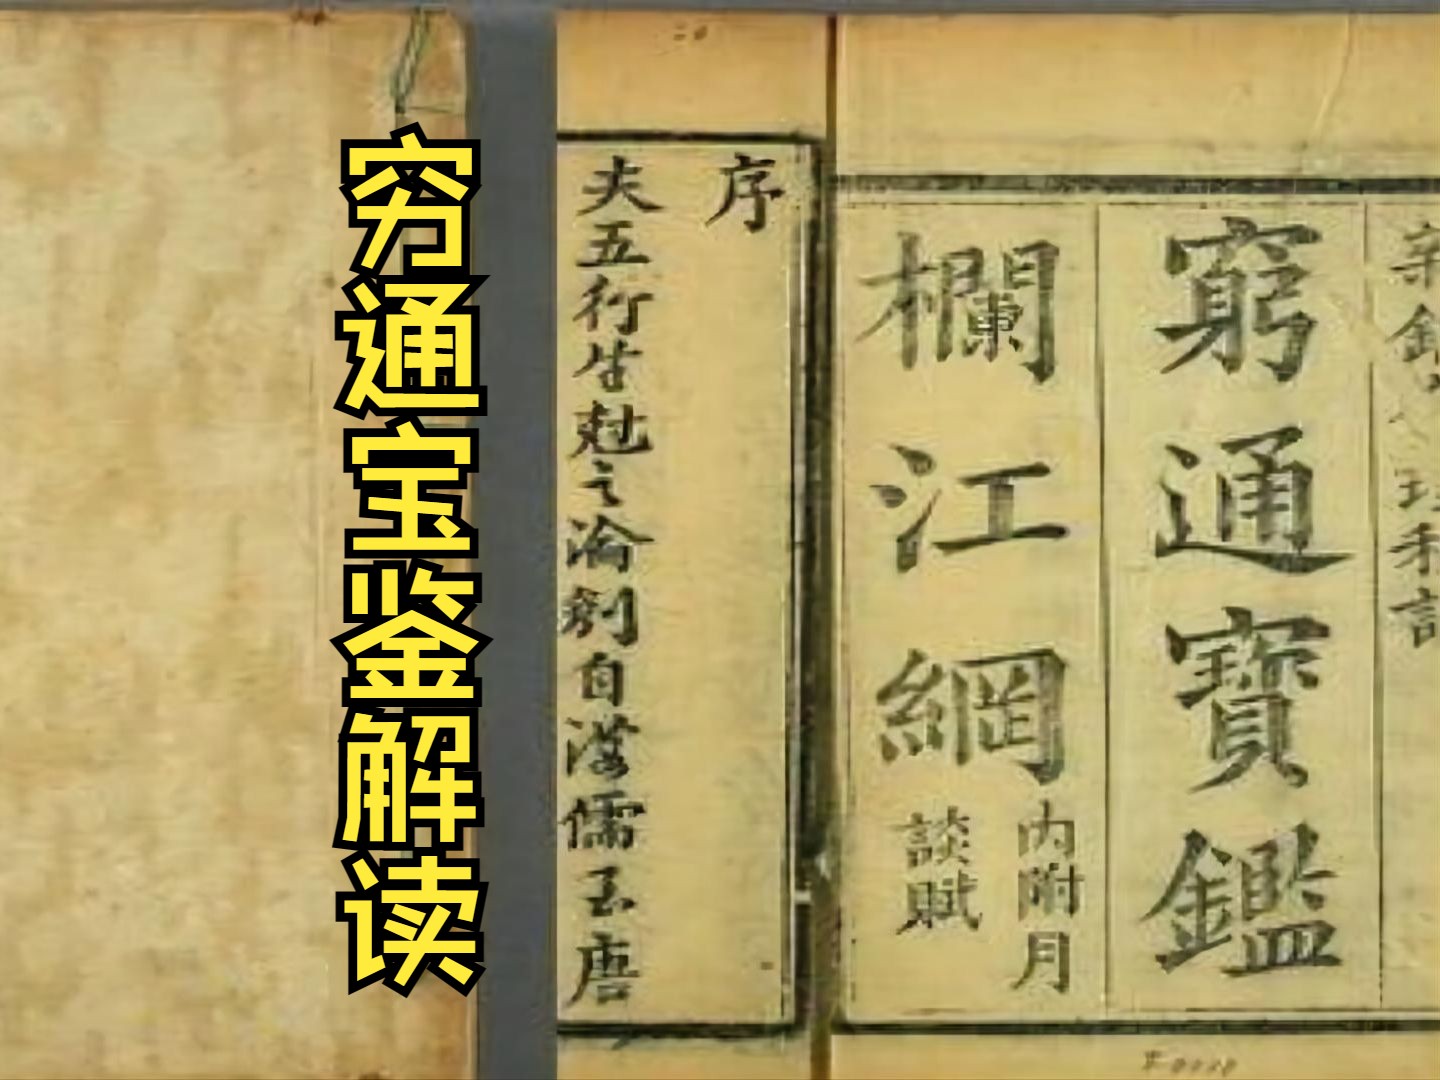 穷通宝鉴解读
窮通寶鑑
欄江網
内附月
談賦
序
夫五行生尅之淪自漢儒至唐